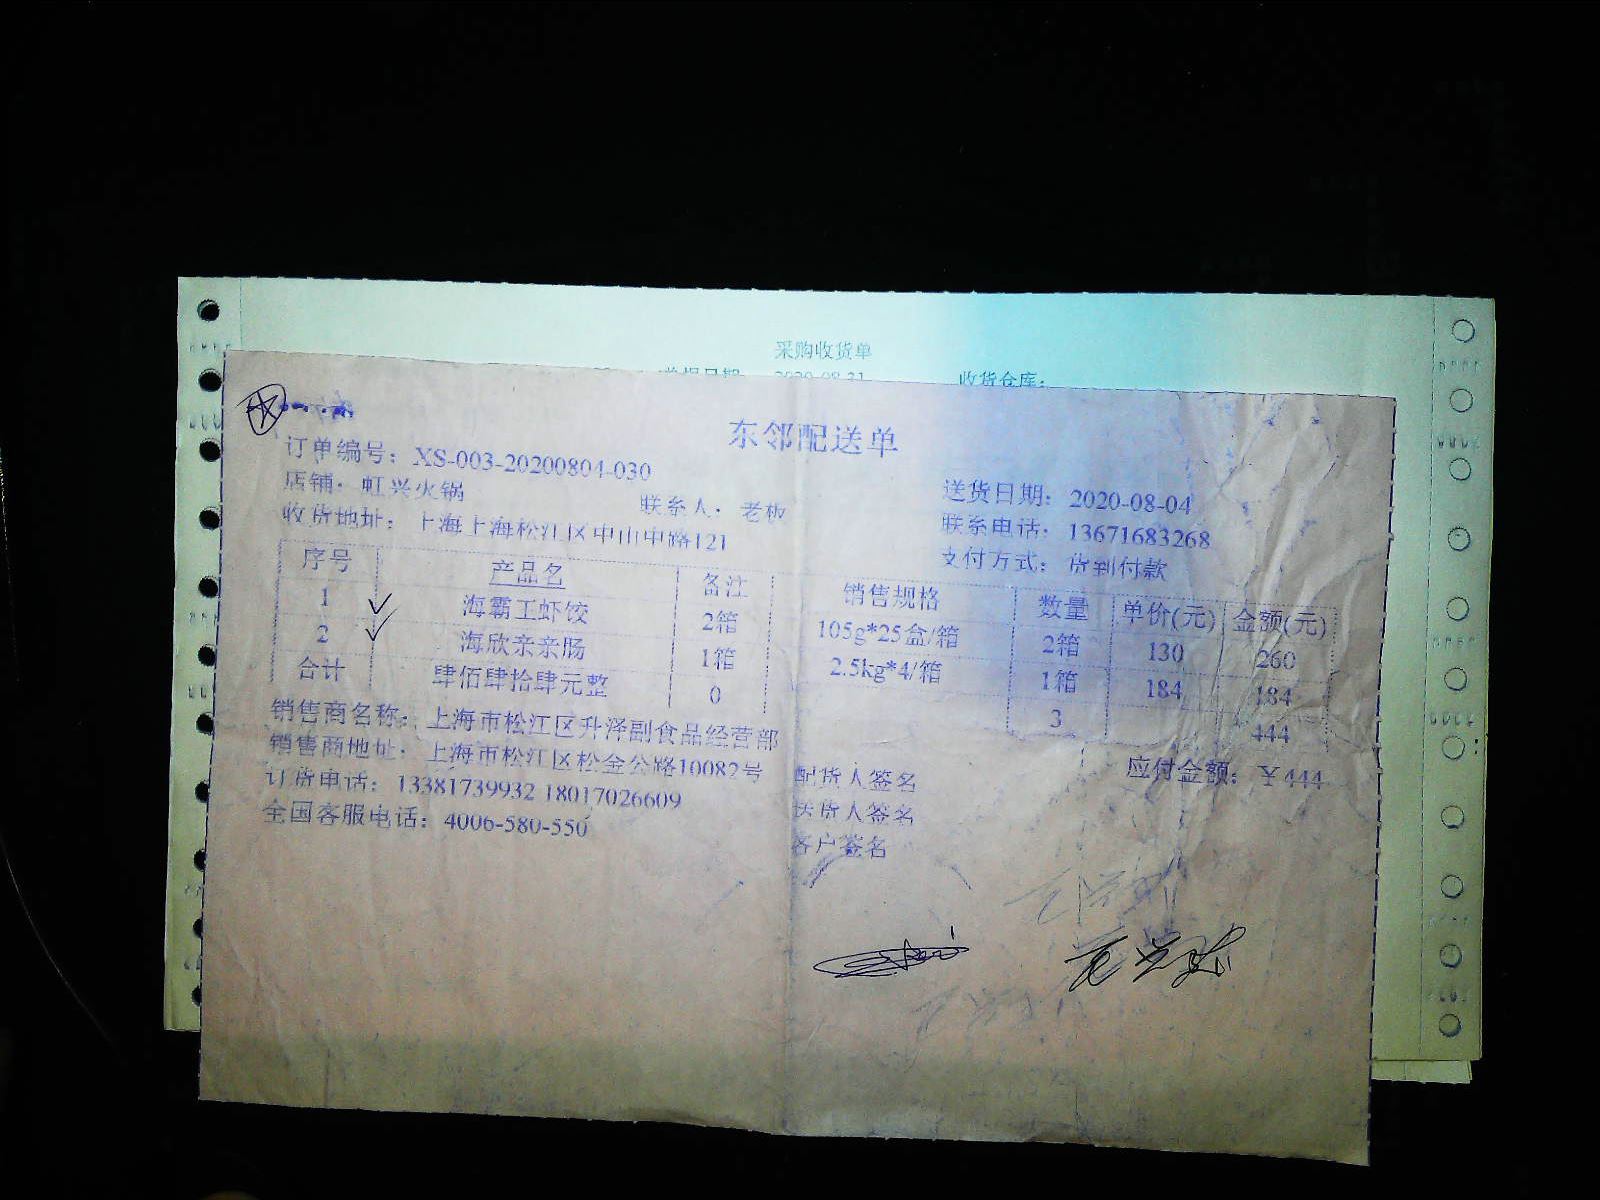 采购收货单
2020-08-31 收货仓库:
东邻配送单
订单编号: XS-003-20200804-030
店铺: 虹兴火锅 联系人: 老板 送货日期: 2020-08-04
收货地址: 上海上海松江区中山中路121 联系电话: 13671683268
支付方式: 货到付款
序号 产品名 备注 销售规格 数量 单价(元) 金额(元)
1 海霸王虾饺 2箱 105g*25盒/箱 2箱 130 260
2 海欣亲亲肠 1箱 2.5kg*4/箱 1箱 184 184
合计 肆佰肆拾肆元整 0 3 444
销售商名称: 上海市松江区升泽副食品经营部
销售商地址: 上海市松江区松金公路10082号 配货人签名 应付金额: ¥444
订货电话: 13381739932 18017026609 送货人签名
全国客服电话: 4006-580-550 客户签名